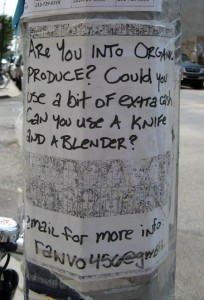 ARE YOU INTO ORGANIC
PRODUCE? COULD YOU
USE A BIT OF EXTRA CASH
CAN YOU USE A KNIFE
AND A BLENDER?
email for more info: